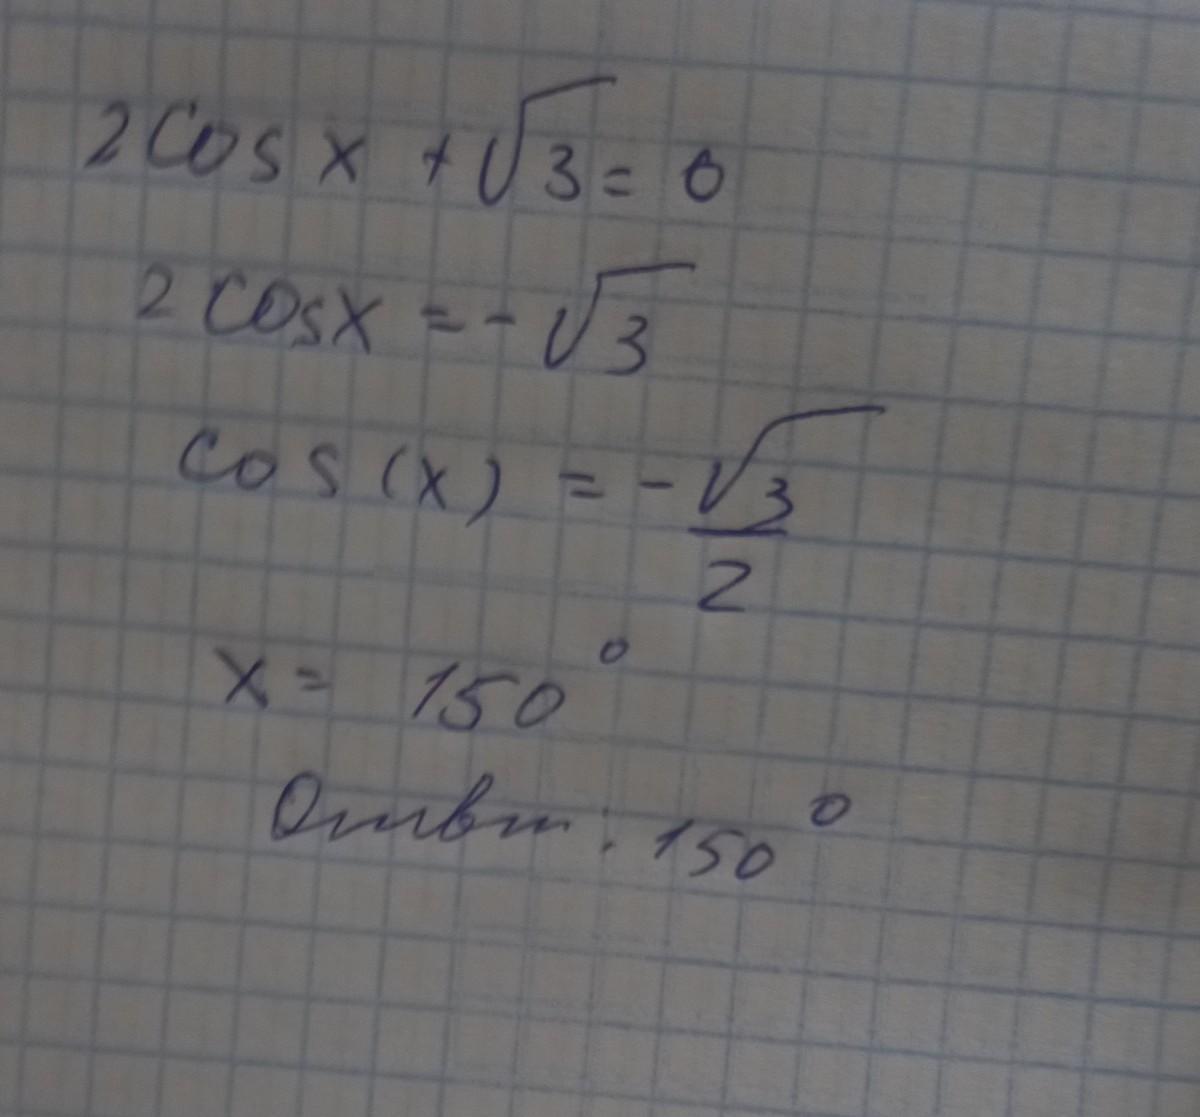 2cos x + √3 = 0
2cosx = - √3
cos(x) = - √3/2
x = 150°
Ответ: 150°